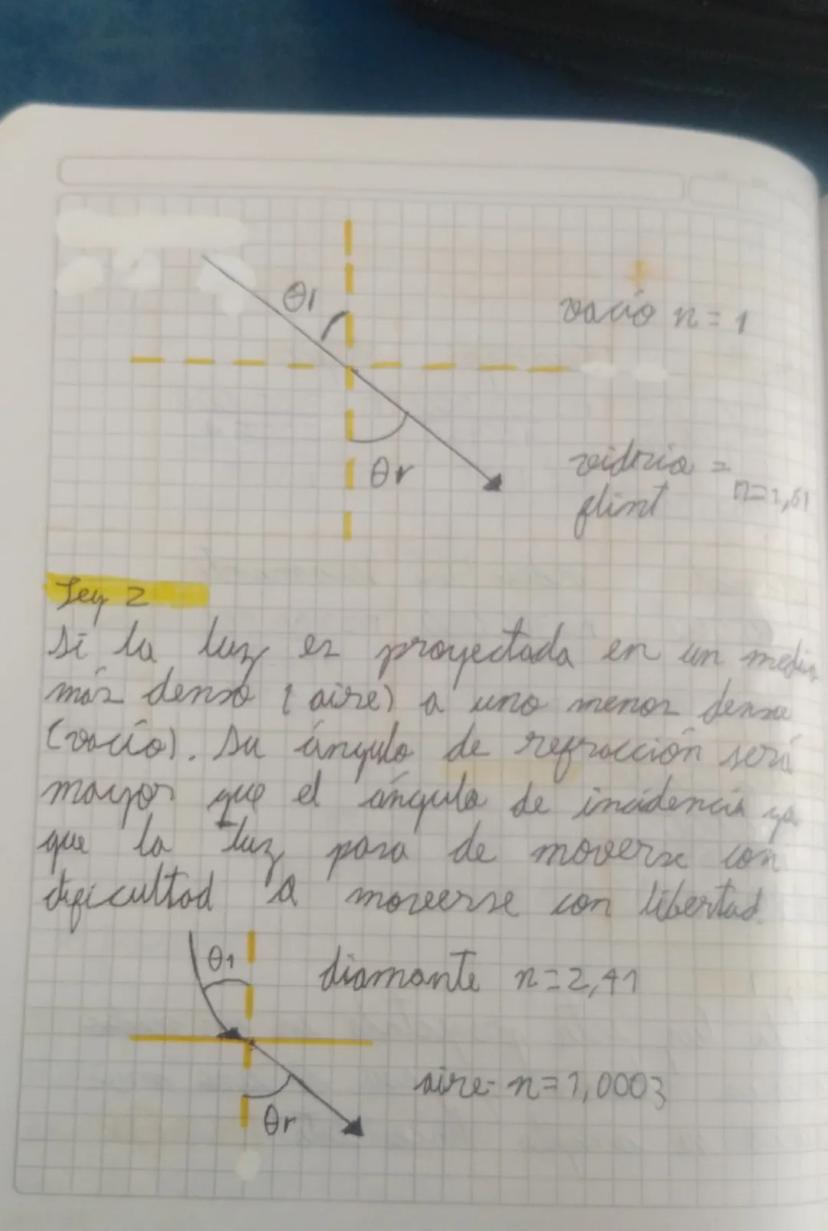 θi
vacío n = 1
θr
vidrio =
n=1,61
flint
Ley 2
Si la luz es proyectada en un medio
más denso (aire) a uno menos denso
(vacío). Su ángulo de refracción será
mayor que el ángulo de incidencia ya
que la luz pasa de moverse con
dificultad a moverse con libertad.
θ1
diamante n=2,41
aire- n=1,0003
θr